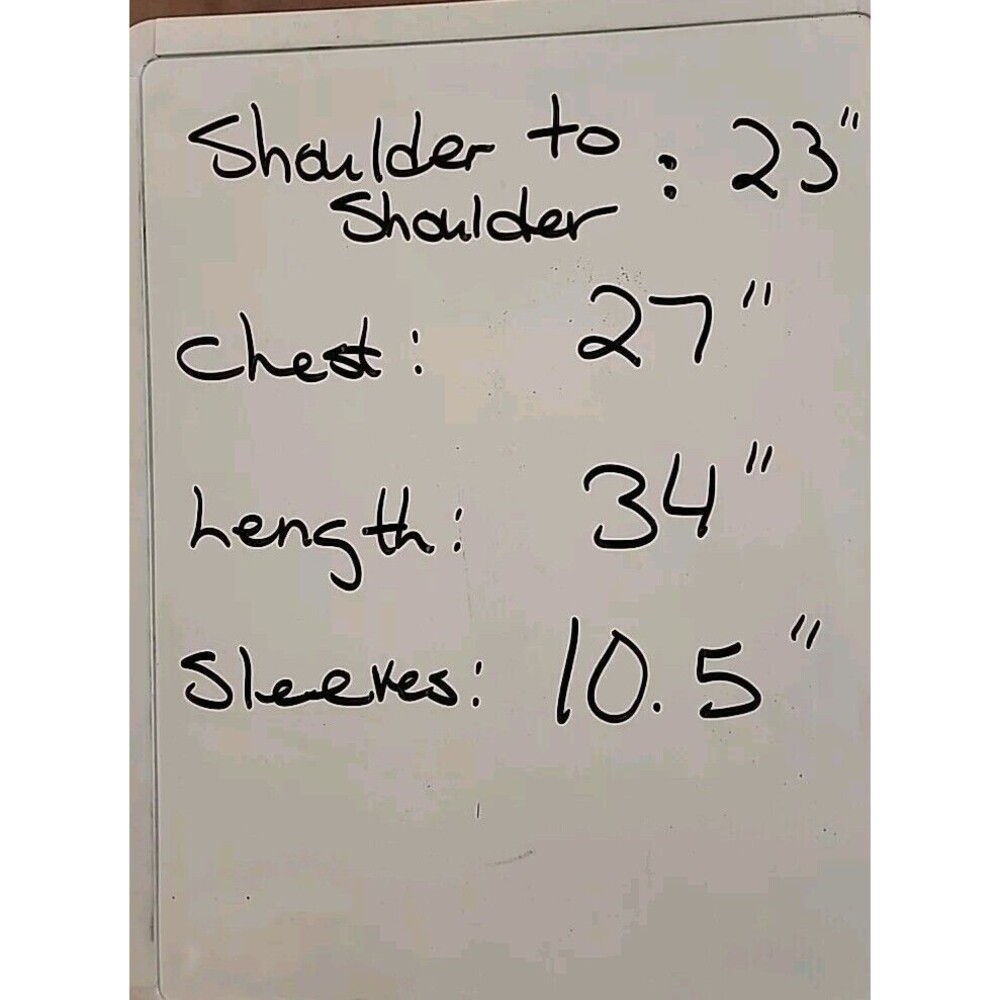 Shoulder to : 23"
Shoulder
Chest: 27"
Length: 34"
Sleeves: 10.5"